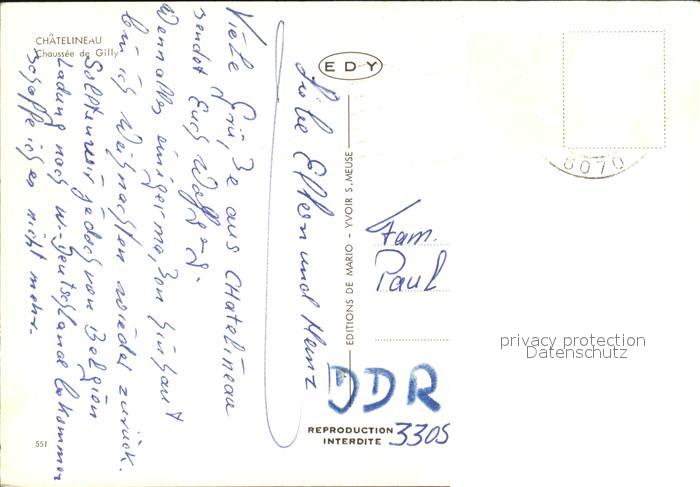 CHÂTELINEAU
Chaussée de Gilly
Liebe Eltern und Heinz
Viele Grüße aus CHatelineau
sendet Euch Wolfgang.
Wenn alles einigermaßen hinhaut
bin ich Weihnachten wieder zurück.
Sollten wir jedoch von Belgien
Ladung nach W.-Deutschland bekommen
schaffe ich es nicht mehr.
551
EDY
EDITIONS DE MARIO - YVOIR S. MEUSE
REPRODUCTION
INTERDITE
6070
Fam.
Paul
DDR
3305
privacy protection
Datenschutz